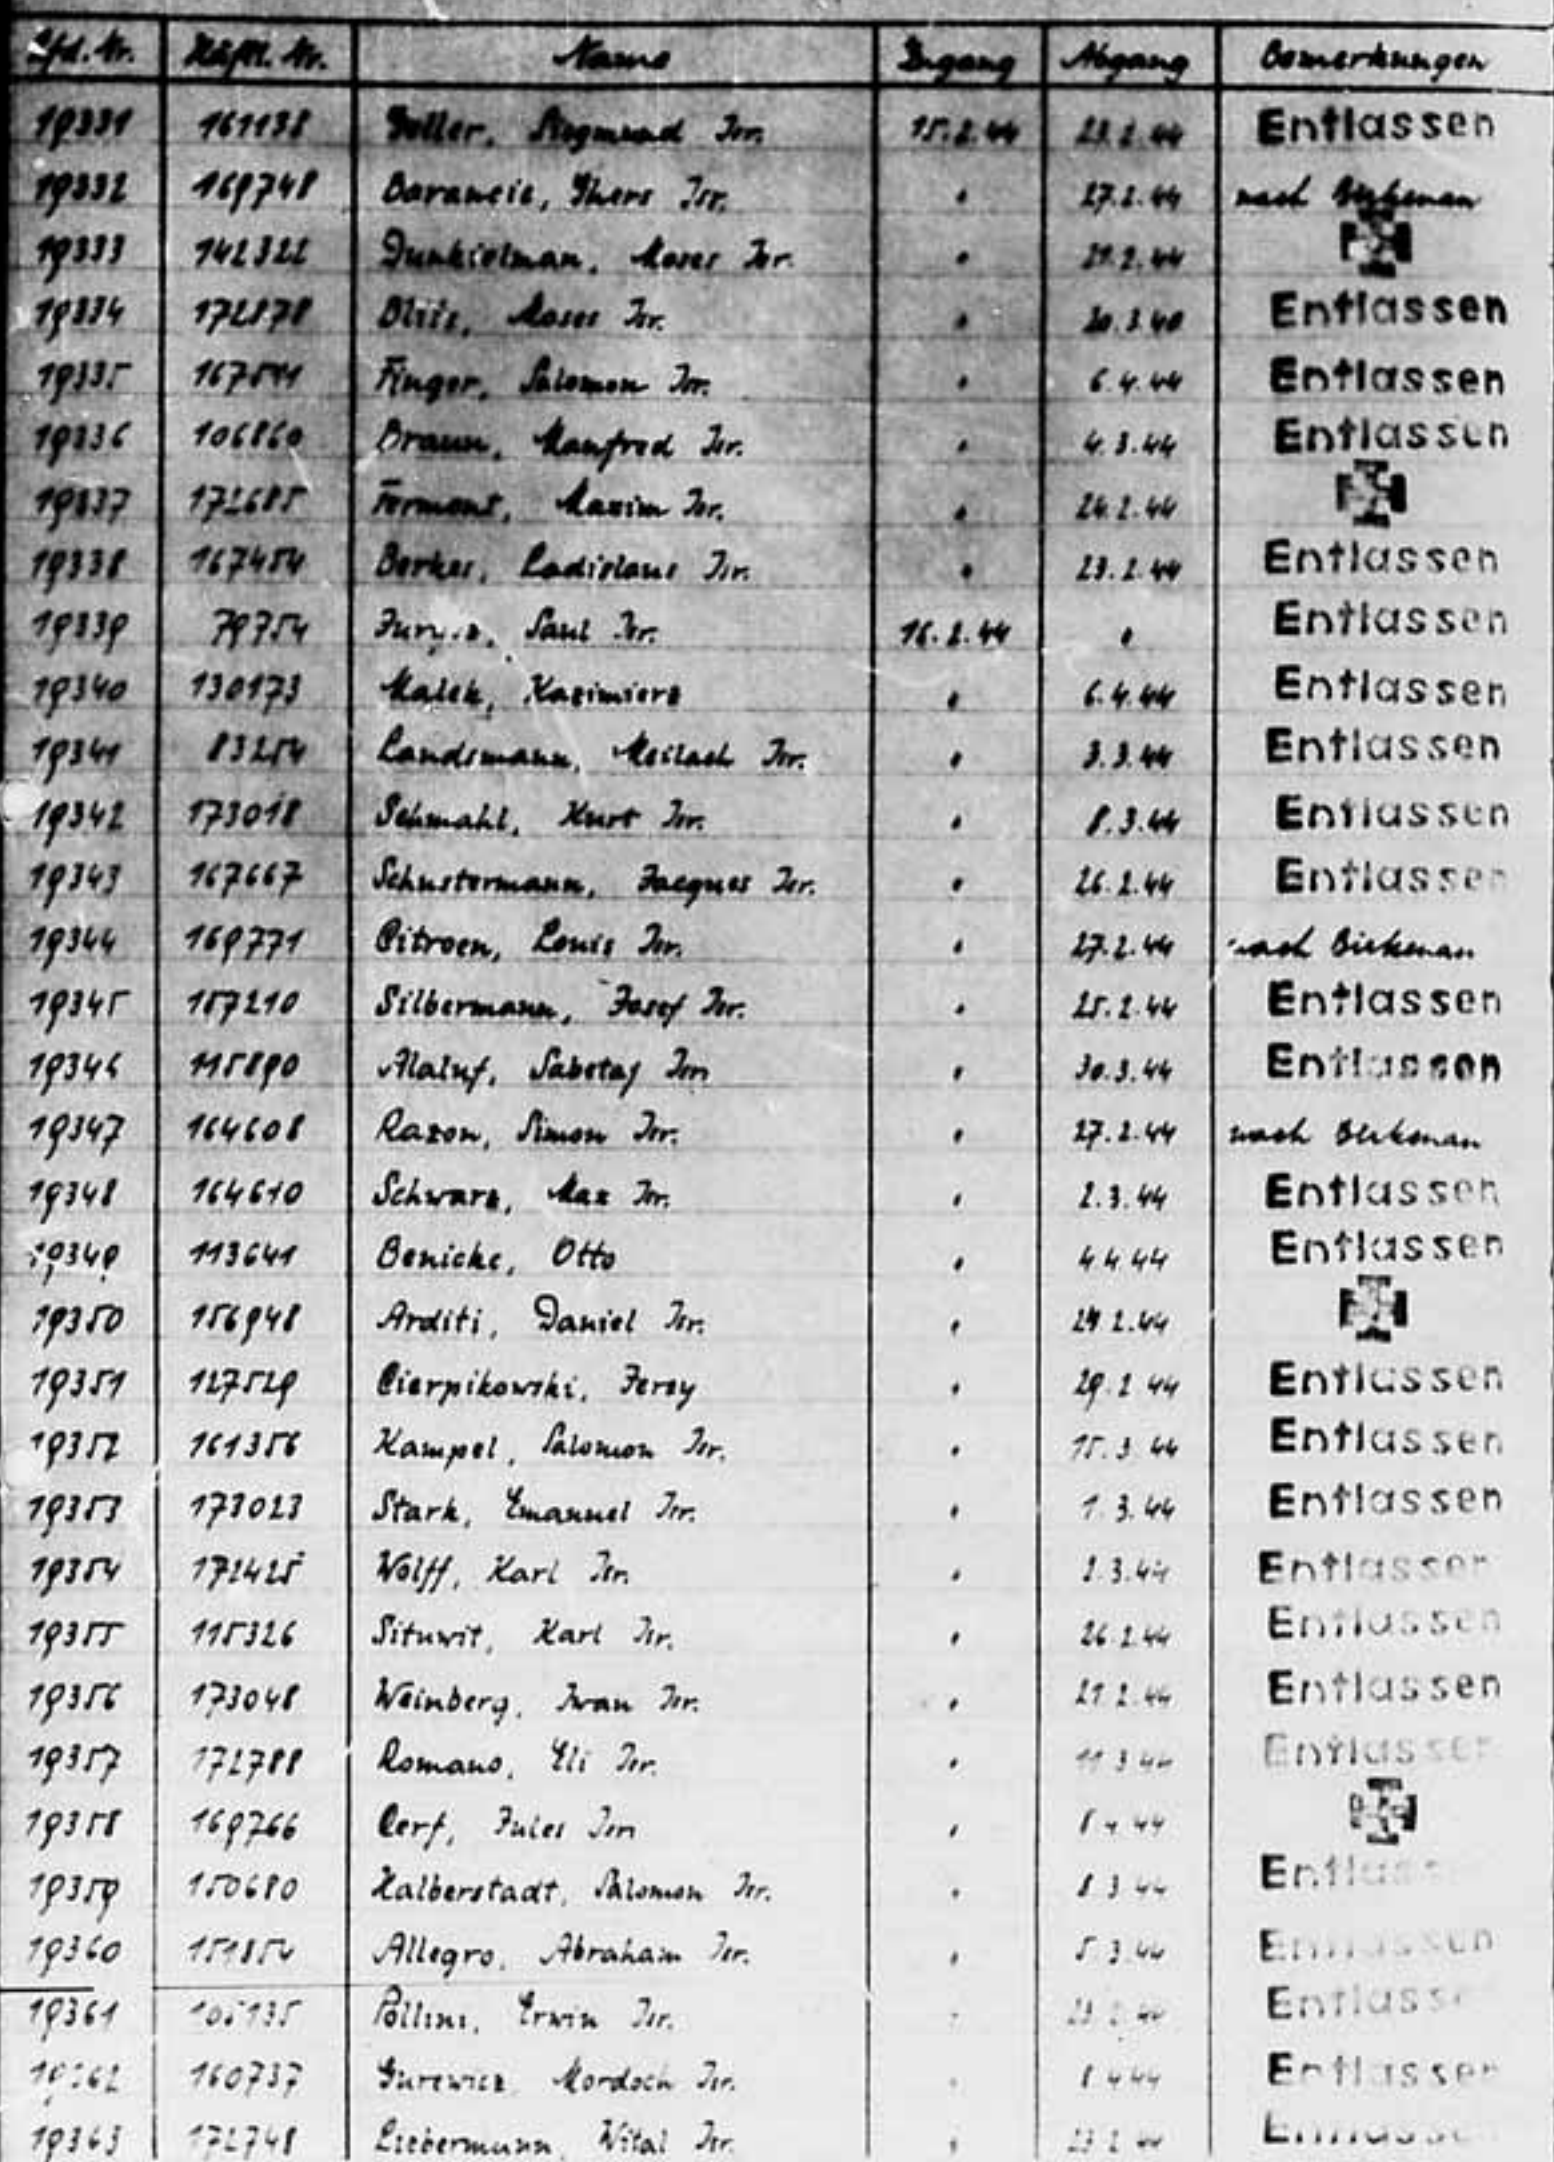 Lfd. Nr. Häftl. Nr. Name Zugang Abgang Bemerkungen
19331 161138 Goller, Siegmund Isr. 15.2.44 23.2.44 Entlassen
19332 169748 Isr. " 27.2.44 nach Birkenau
19333 142322 Dunkielman, Moses Isr. " 29.2.44
19334 172878 Moses Isr. " Entlassen
19335 Finger, Salomon Isr. " 6.4.44 Entlassen
19336 106860 Braun, Manfred Isr. " 4.3.44 Entlassen
19337 172685 Fermont, Maxim Isr. " 24.2.44
19338 167454 Berkes, Ladislaus Isr. " 23.2.44 Entlassen
19339 79754 Saul Isr. 16.2.44 " Entlassen
19340 130173 Malek, Kazimierz " 6.4.44 Entlassen
19341 83254 Landsmann, Meilach Isr. " 3.3.44 Entlassen
19342 173018 Schmahl, Kurt Isr. " 8.3.44 Entlassen
19343 167667 Schustermann, Jacques Isr. " 26.2.44 Entlassen
19344 169771 Citroen, Louis Isr. " 27.2.44 nach Birkenau
19345 157210 Silbermann, Josef Isr. " 25.2.44 Entlassen
19346 115890 Alaluf, Sabetaj Isr. " 30.3.44 Entlassen
19347 164608 Razon, Simon Isr. " 27.2.44 nach Birkenau
19348 164610 Schwarz, Max Isr. " 2.3.44 Entlassen
19349 113641 Benicke, Otto " 4.4.44 Entlassen
19350 156948 Arditi, Daniel Isr. " 29.2.44
19351 127529 Cierpikowski, Jerzy " 29.2.44 Entlassen
19352 161356 Kampel, Salomon Isr. " 15.3.44 Entlassen
19353 173023 Stark, Emanuel Isr. " 1.3.44 Entlassen
19354 172425 Wolff, Karl Isr. " 2.3.44 Entlassen
19355 115326 Situwit, Karl Isr. " 26.2.44 Entlassen
19356 173048 Weinberg, Iwan Isr. " 21.2.44 Entlassen
19357 172788 Romano, Eli Isr. " 11.3.44 Entlassen
19358 169766 Cerf, Jules Isr. " 8.4.44
19359 150680 Halberstadt, Salomon Isr. " 8.3.44 Entlassen
19360 151854 Allegro, Abraham Isr. " 5.3.44 Entlassen
19361 Pollini, Erwin Isr. " Entlassen
19362 160737 Gurewicz, Mordoch Isr. " 8.4.44 Entlassen
19363 172748 Liebermann, Wital Isr. " 23.2.44 Entlassen